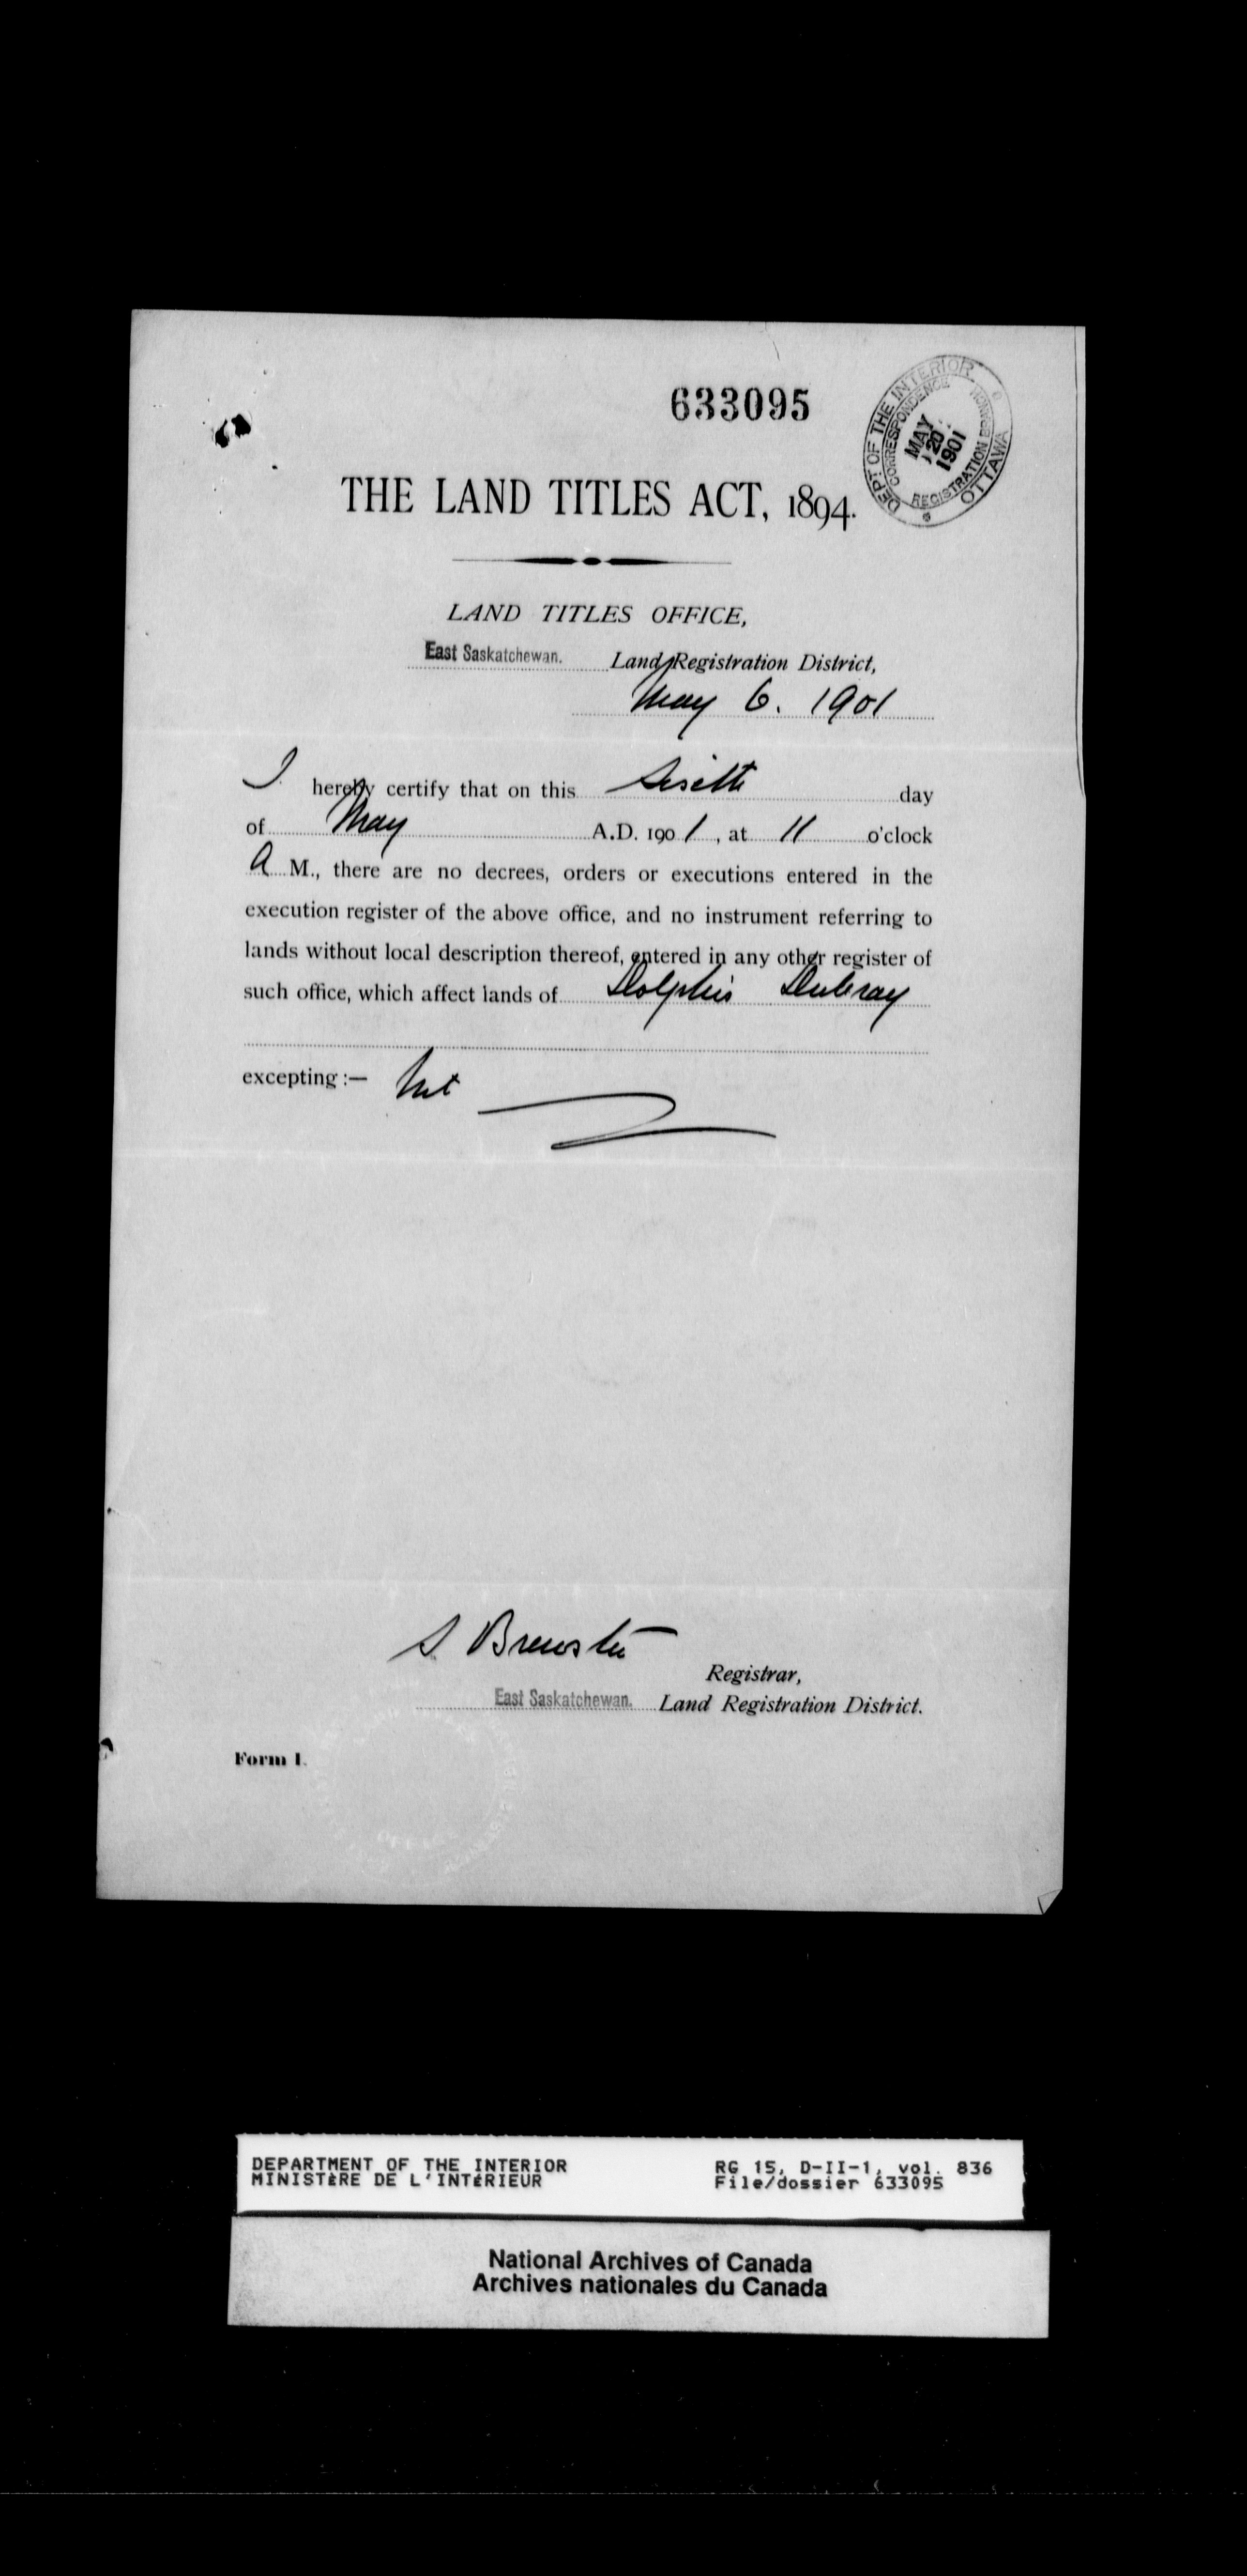 633095
DEPT. OF THE INTERIOR OTTAWA
CORRESPONDENCE REGISTRATION BRANCH
MAY
20
1901
THE LAND TITLES ACT, 1894.
LAND TITLES OFFICE,
East Saskatchewan. Land Registration District,
May 6. 1901
I hereby certify that on this day
of May A.D. 1901, at 11 o'clock
A M., there are no decrees, orders or executions entered in the
execution register of the above office, and no instrument referring to
lands without local description thereof, entered in any other register of
such office, which affect lands of Dolphis Dubray
excepting :—
S Brewster
Registrar,
East Saskatchewan. Land Registration District.
Form I.
DEPARTMENT OF THE INTERIOR RG 15, D-II-1, vol. 836
MINISTÈRE DE L'INTÉRIEUR File/dossier 633095
National Archives of Canada
Archives nationales du Canada